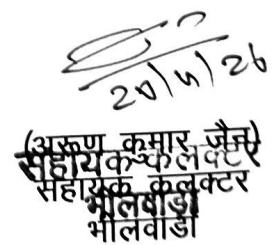 20/5/26
(अरूण कुमार जैन)
सहायक कलक्टर
सहायक कलक्टर
भीलवाड़ा
भीलवाड़ा